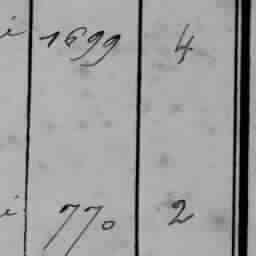 i 1699 4
i 770 2